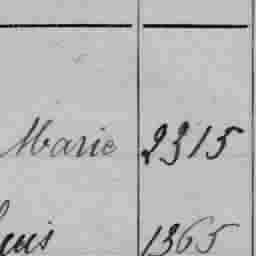 Marie 2315
1365